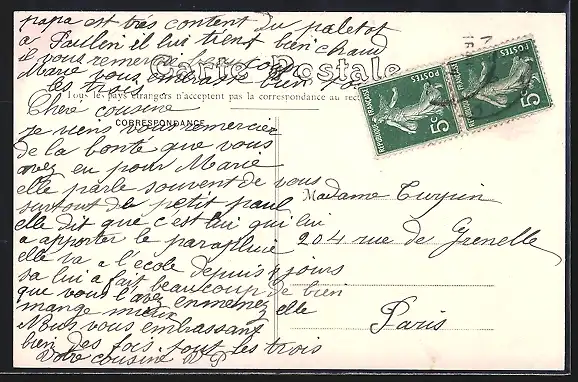 papa est très content du paletot
a Paulin il lui tient bien chaud
vous remercie
Marie vous embrasse bien
les trois
Carte Postale
Tous les pays étrangers n'acceptent pas la correspondance au
CORRESPONDANCE
Chere cousine
Je viens vous remercier
de la bonté que vous
avez eu pour Marie
elle parle souvent de vous
surtout de petit paul
elle dit que c'est lui qui lui
a apporter le parapluie
elle va a l'école depuis jours
sa lui a fait beaucoup de bien
que vous l'avez enmenez elle
mange mieux
Nous vous embrassant
bien des fois tout les trois
Votre cousine
Madame
204 rue de Grenelle
Paris
POSTES
5c
REPUBLIQUE FRANÇAISE
POSTES
5c